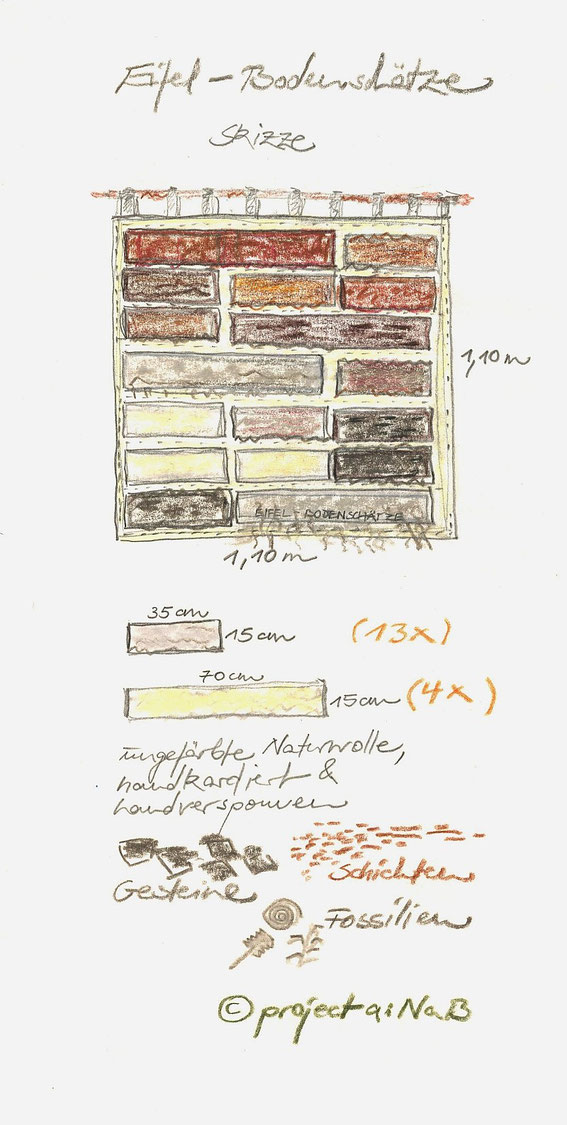 Eifel - Bodenschätze
Skizze
1,10 m
EIFEL - BODENSCHÄTZE
1,10 m
35 cm
15 cm (13x)
70 cm
15 cm (4x)
ungefärbte Naturwolle,
handkardiert &
handversponnen
Schichten
Gesteine
Fossilien
© project aiNaB